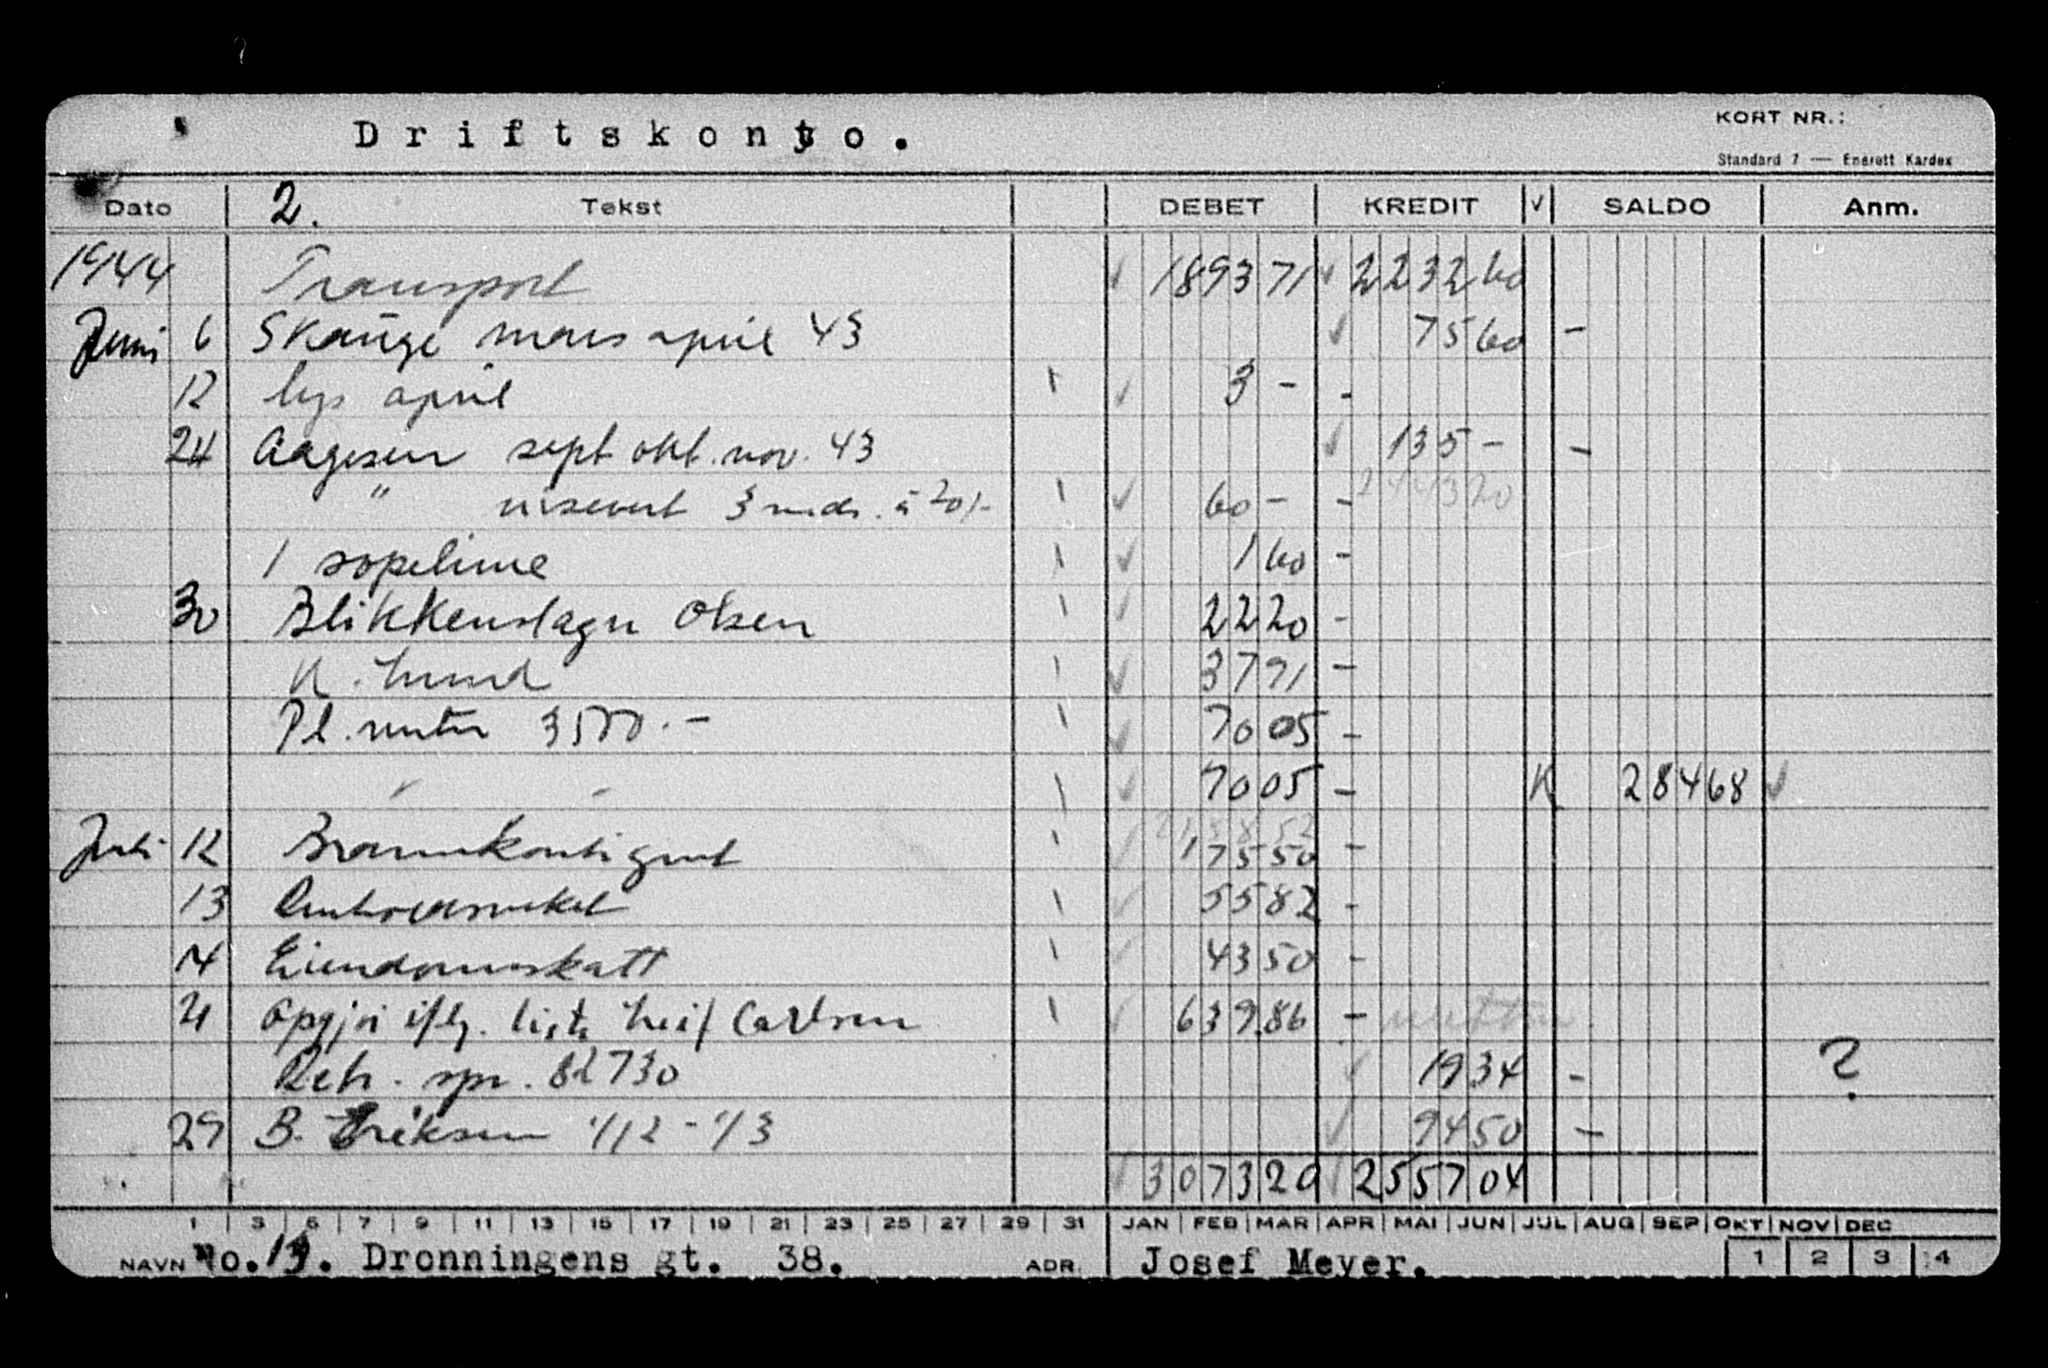 Driftskonto.
KORT NR.:
Standard 7 — Enerett Kardex
Dato 2. Tekst DEBET KREDIT V SALDO Anm.
1944 Transport 1893 71 2232 60
Juni 6 Skauge mars april 43 75 60 -
12 lys april 3 - -
24 Aagesen sept okt. nov. 43 135 - -
" 3 mdr. à 20/- 60 - - 2443 20
1 sopelime 1 60 -
30 Blikkenslager Olsen 22 20 -
N. Lund 37 91 -
Pl. renter 3500.- 70 05 -
70 05 - K 284 68
2158 52
Juli 12 Brannkontigent 175 50 -
13 55 82 -
14 Eiendomsskatt 43 50 -
21 Oppgjør iflg. liste Leif Carlsen 639.86 -
Reh. spr. 82730 19 34 - ?
29 B. Eriksen 1/12 - 1/3 94 50 -
3073 20 2557 04
1 3 5 7 9 11 13 15 17 19 21 23 25 27 29 31 JAN FEB MAR APR MAI JUN JUL AUG SEP OKT NOV DEC
NAVN No. 13. Dronningens gt. 38. ADR. Josef Meyer. 1 2 3 4